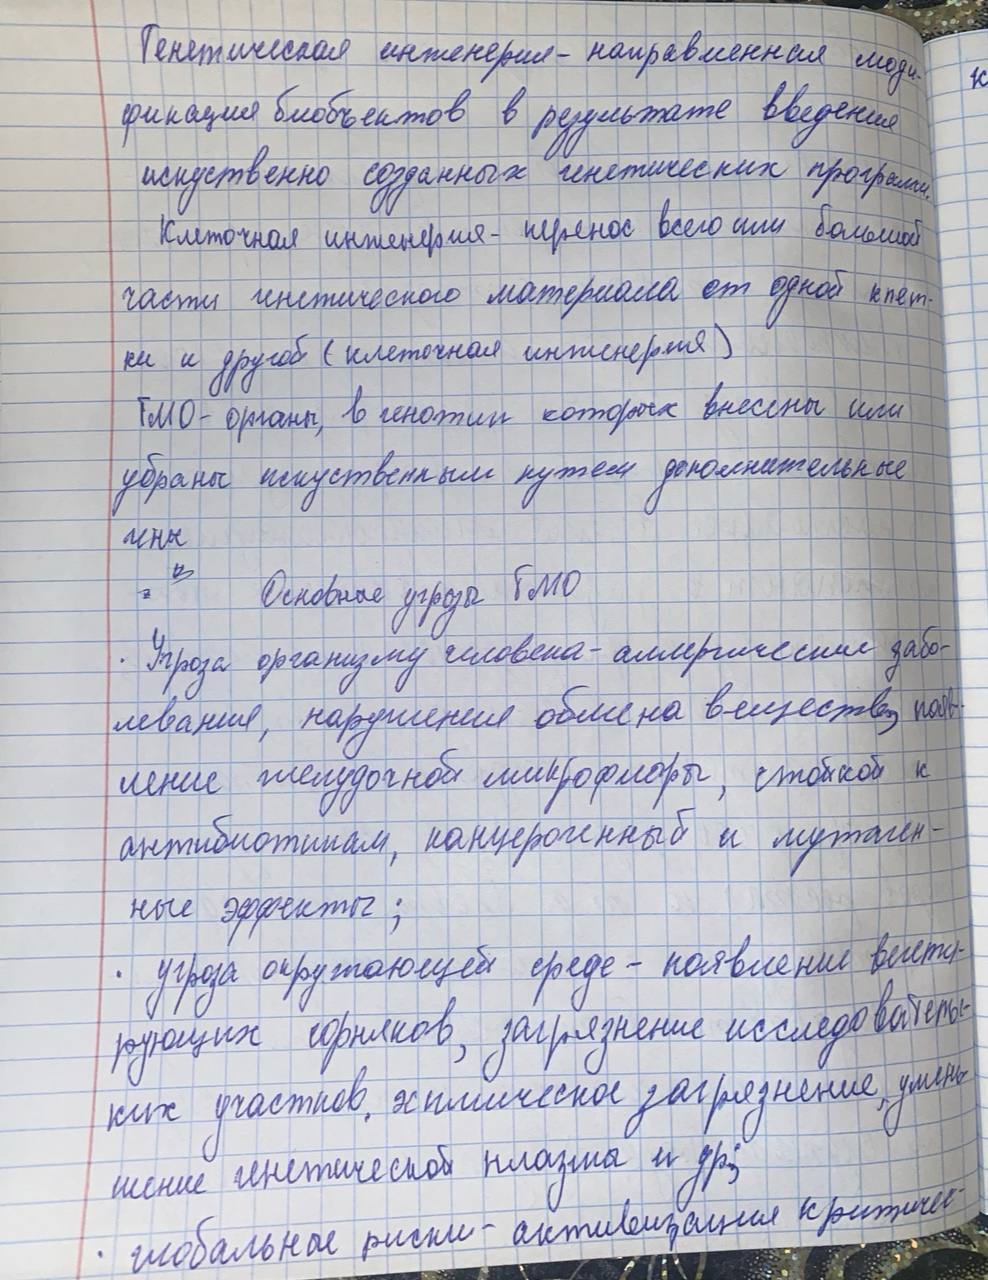 Генетическая инженерия - направленная моди-
фикация биобъектов в результате введения
искуственно созданных генетических программ.
Клеточная инженерия - перенос всего или большой
части генетического материала от одной клет-
ки к другой (клеточная инженерия)
ГМО - органы, в генотип которых внесены или
убраны искуственным путем дополнительные
гены
Основные угрозы ГМО
· Угроза организму человека - аллергические забо-
левания, нарушения обмена веществ, появ-
ление желудочной микрофлоры, стойкой к
антибиотикам, канцерогенный и мутаген-
ные эффекты;
· угроза окружающей среде - появление вегети-
рующих сорняков, загрязнение исследователь-
ких участков, химическое загрязнение, умень-
шение генетической плазмы и др;
· глобальные риски - активизация критичес-
к